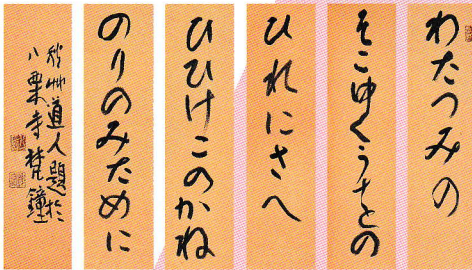 わたつみの
そこゆくうをの
ひれにさへ
ひひけこのかね
のりのみために
秋艸道人題於
八栗寺梵鐘